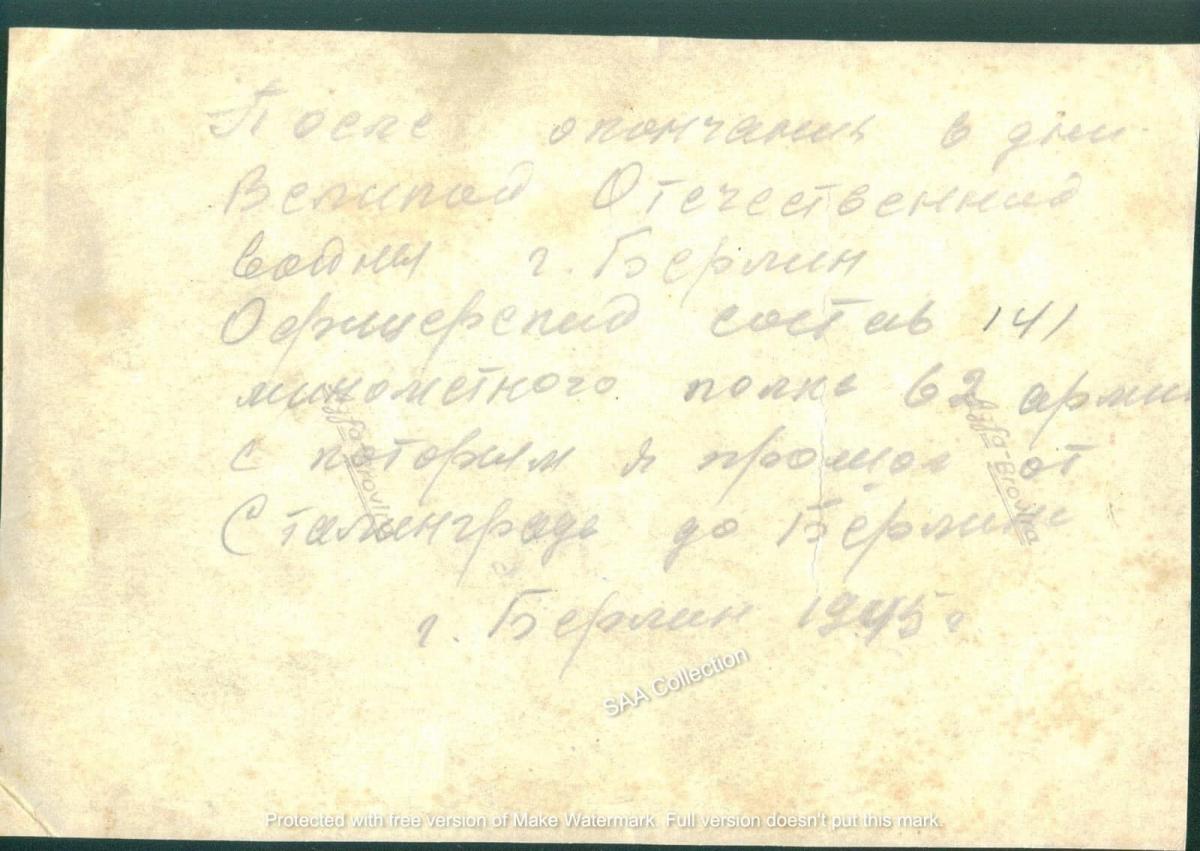 После окончания в дни
Великой Отечественной
войны г. Берлин
Офицерский состав 141
минометного полка 62 армии
с которым я прошол от
Сталинграда до Берлина
г. Берлин 1945 г
Agfa-Brovira
Agfa-Brovira
SAA Collection
Protected with free version of Make Watermark. Full version doesn't put this mark.